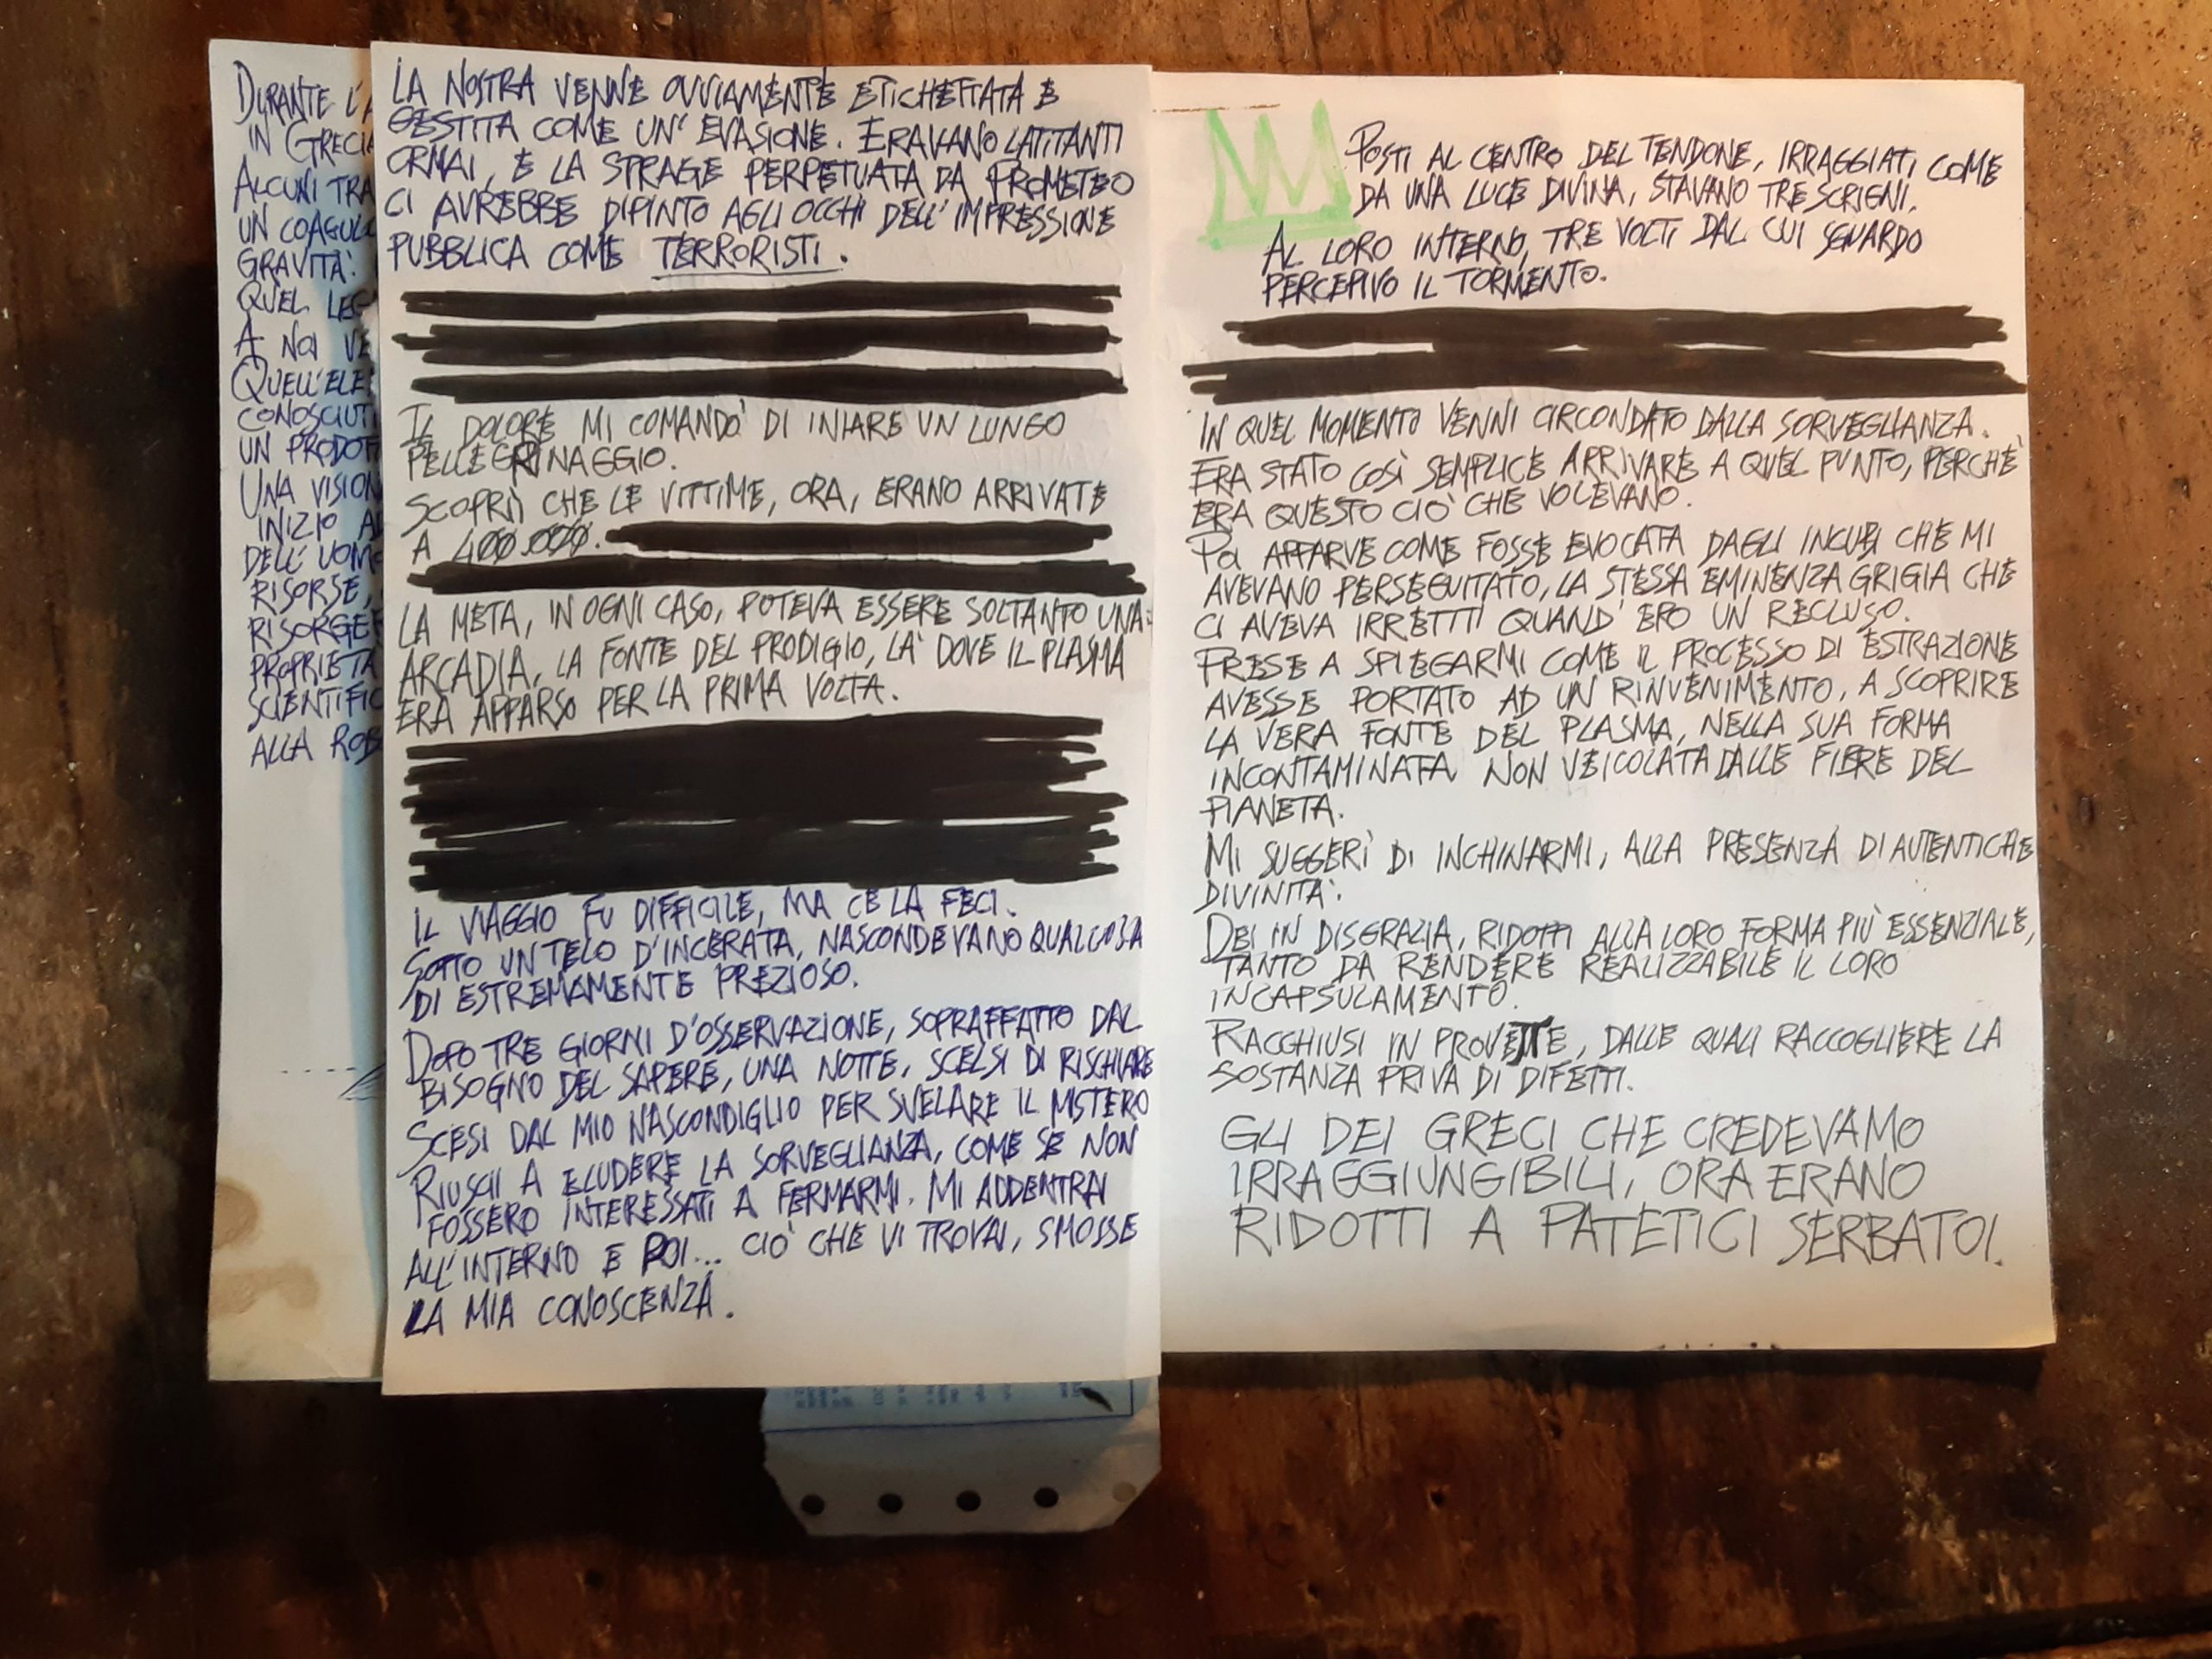 DURANTE L'A
IN GRECIA
ALCUNI TRA
UN COAGULO
GRAVITÀ.
QUEL LEG
A NOI VE
QUELL'ELE
CONOSCIUT
UN PRODOT
UNA VISION
INIZIO AD
DELL'UOMO
RISORSE,
RISORGE
PROPRIETÀ
SCIENTIFIC
ALLA ROB
LA NOSTRA VENNE OVVIAMENTE ETICHETTATA E
GESTITA COME UN'EVASIONE. ERAVANO LATITANTI
ORMAI, E LA STRAGE PERPETUATA DA PROMETEO
CI AVREBBE DIPINTO AGLI OCCHI DELL'IMPRESSIONE
PUBBLICA COME TERRORISTI.
IL DOLORE MI COMANDÒ DI INIARE UN LUNGO
PELLEGRINAGGIO.
SCOPRII CHE LE VITTIME, ORA, ERANO ARRIVATE
A 400.000.
LA META, IN OGNI CASO, POTEVA ESSERE SOLTANTO UNA:
ARCADIA, LA FONTE DEL PRODIGIO, LÀ DOVE IL PLASMA
ERA APPARSO PER LA PRIMA VOLTA.
IL VIAGGIO FU DIFFICILE, MA CE LA FECI.
SOTTO UN TELO D'INCERATA, NASCONDEVANO QUALCOSA
DI ESTREMAMENTE PREZIOSO.
DOPO TRE GIORNI D'OSSERVAZIONE, SOPRAFFATTO DAL
BISOGNO DEL SAPERE, UNA NOTTE, SCELSI DI RISCHIARE
SCESI DAL MIO NASCONDIGLIO PER SVELARE IL MISTERO
RIUSCII A ELUDERE LA SORVEGLIANZA, COME SE NON
FOSSERO INTERESSATI A FERMARMI. MI ADDENTRAI
ALL'INTERNO E POI... CIÒ CHE VI TROVAI, SMOSSE
LA MIA CONOSCENZA.
POSTI AL CENTRO DEL TENDONE, IRRAGGIATI COME
DA UNA LUCE DIVINA, STAVANO TRE SCRIGNI.
AL LORO INTERNO, TRE VOLTI DAL CUI SGUARDO
PERCEPIVO IL TORMENTO.
IN QUEL MOMENTO VENNI CIRCONDATO DALLA SORVEGLIANZA.
ERA STATO COSÌ SEMPLICE ARRIVARE A QUEL PUNTO, PERCHÈ
ERA QUESTO CIÒ CHE VOLEVANO.
POI APPARVE COME FOSSE EVOCATA DAGLI INCUBI CHE MI
AVEVANO PERSEGUITATO, LA STESSA EMINENZA GRIGIA CHE
CI AVEVA IRRETITI QUAND'ERO UN RECLUSO.
PRESE A SPIEGARMI COME IL PROCESSO DI ESTRAZIONE
AVESSE PORTATO AD UN RINVENIMENTO, A SCOPRIRE
LA VERA FONTE DEL PLASMA, NELLA SUA FORMA
INCONTAMINATA NON VEICOLATA DALLE FIBRE DEL
PIANETA.
MI SUGGERÌ DI INCHINARMI, ALLA PRESENZA DI AUTENTICHE
DIVINITÀ.
DEI IN DISGRAZIA, RIDOTTI ALLA LORO FORMA PIÙ ESSENZIALE,
TANTO DA RENDERE REALIZZABILE IL LORO
INCAPSULAMENTO.
RACCHIUSI IN PROVETTE, DALLE QUALI RACCOGLIERE LA
SOSTANZA PRIVA DI DIFETTI.
GLI DEI GRECI CHE CREDEVAMO
IRRAGGIUNGIBILI, ORA ERANO
RIDOTTI A PATETICI SERBATOI.